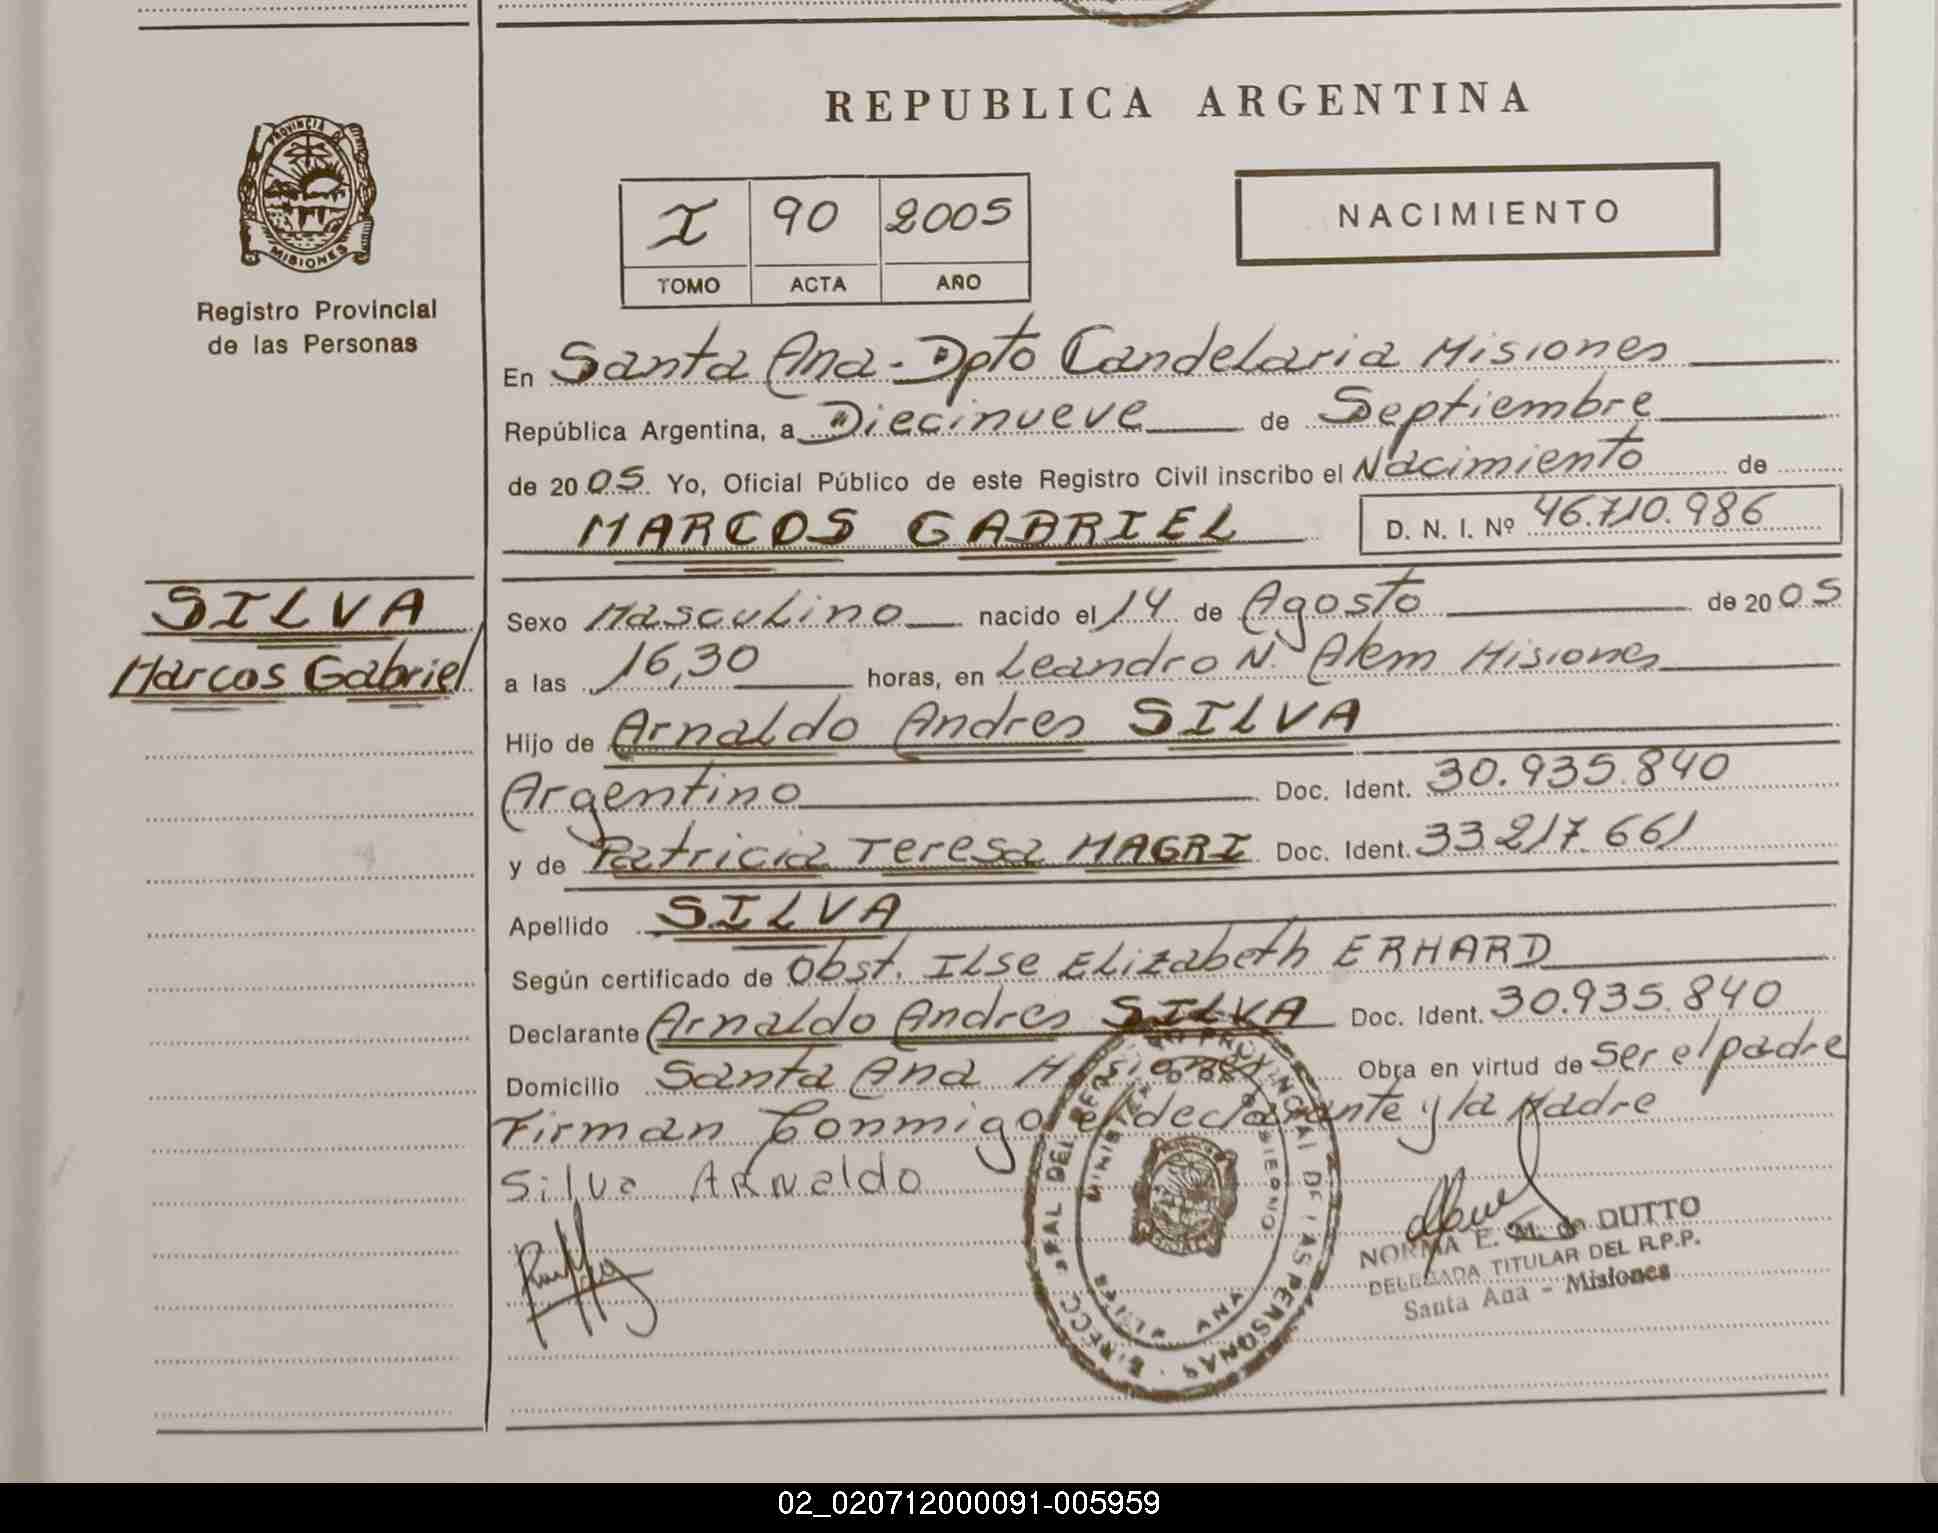 REPUBLICA ARGENTINA
PROVINCIA DE
MISIONES
Registro Provincial
de las Personas
I 90 2005
TOMO ACTA AÑO
NACIMIENTO
En Santa Ana - Dpto Candelaria Misiones
República Argentina, a Diecinueve de Septiembre
de 2005 Yo, Oficial Público de este Registro Civil inscribo el Nacimiento de
MARCOS GABRIEL D. N. I. Nº 46.710.986
SILVA
Marcos Gabriel
Sexo Masculino nacido el 14 de Agosto de 2005
a las 16,30 horas, en Leandro N. Alem Misiones
Hijo de Arnaldo Andres SILVA
Argentino Doc. Ident. 30.935.840
y de Patricia Teresa MAGRI Doc. Ident. 33 217.661
Apellido SILVA
Según certificado de Obst. Ilse Elizabeth ERHARD
Declarante Arnaldo Andres SILVA Doc. Ident. 30.935.840
Domicilio Santa Ana Misiones Obra en virtud de ser el padre
Firman Conmigo el declarante y la Madre
Silva ARNaldo
NORMA E. M. de DUTTO
DELEGADA TITULAR DEL R.P.P.
Santa Ana - Misiones
PROVINCIAL DE LAS PERSONAS
ANA
02_020712000091-005959